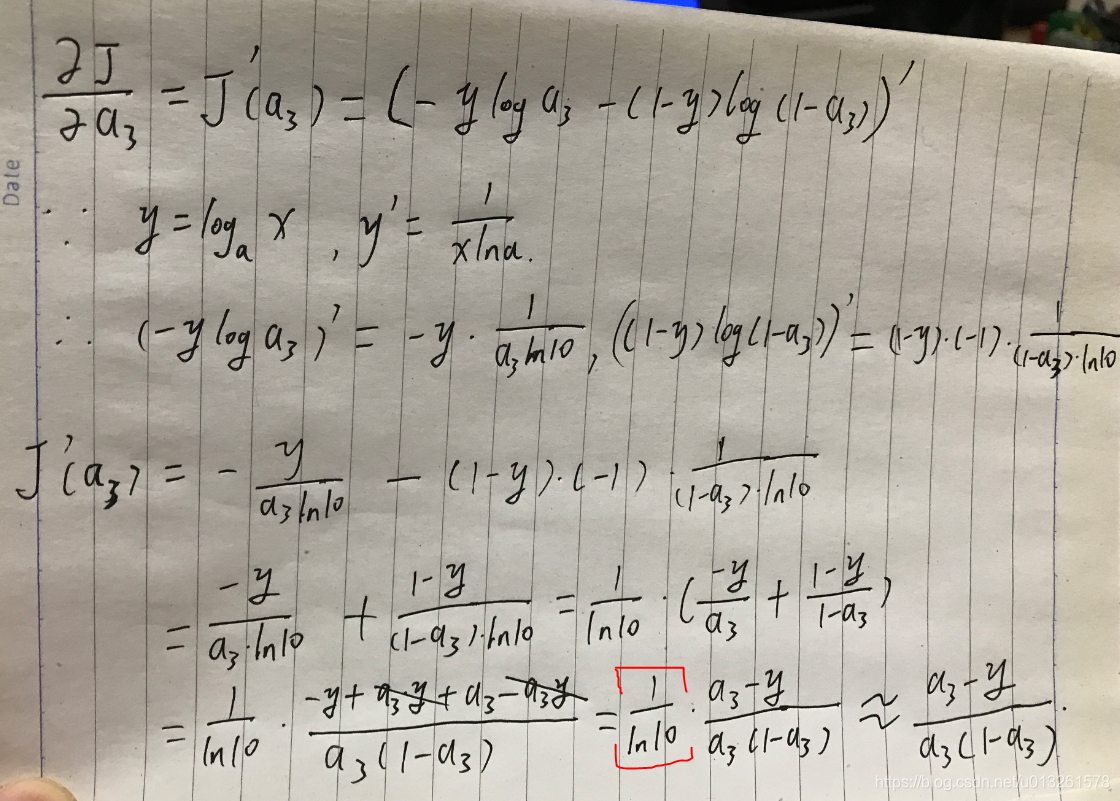 Date
∂J/∂a₃ = J'(a₃) = (-y log a₃ - (1-y) log (1-a₃))'
∵ y = logₐ x , y' = 1/(x ln a).
∴ (-y log a₃)' = -y · 1/(a₃ ln10), ((1-y) log(1-a₃))' = (1-y)·(-1)· 1/((1-a₃)·ln10)
J'(a₃) = - y/(a₃ ln10) - (1-y)·(-1) · 1/((1-a₃)·ln10)
= -y/(a₃·ln10) + (1-y)/((1-a₃)·ln10) = 1/ln10 · (-y/a₃ + (1-y)/(1-a₃))
= 1/ln10 · (-y + a₃y + a₃ - a₃y)/(a₃(1-a₃)) = 1/ln10 · (a₃-y)/(a₃(1-a₃)) ≈ (a₃-y)/(a₃(1-a₃)).
https://blog.csdn.net/u013261578